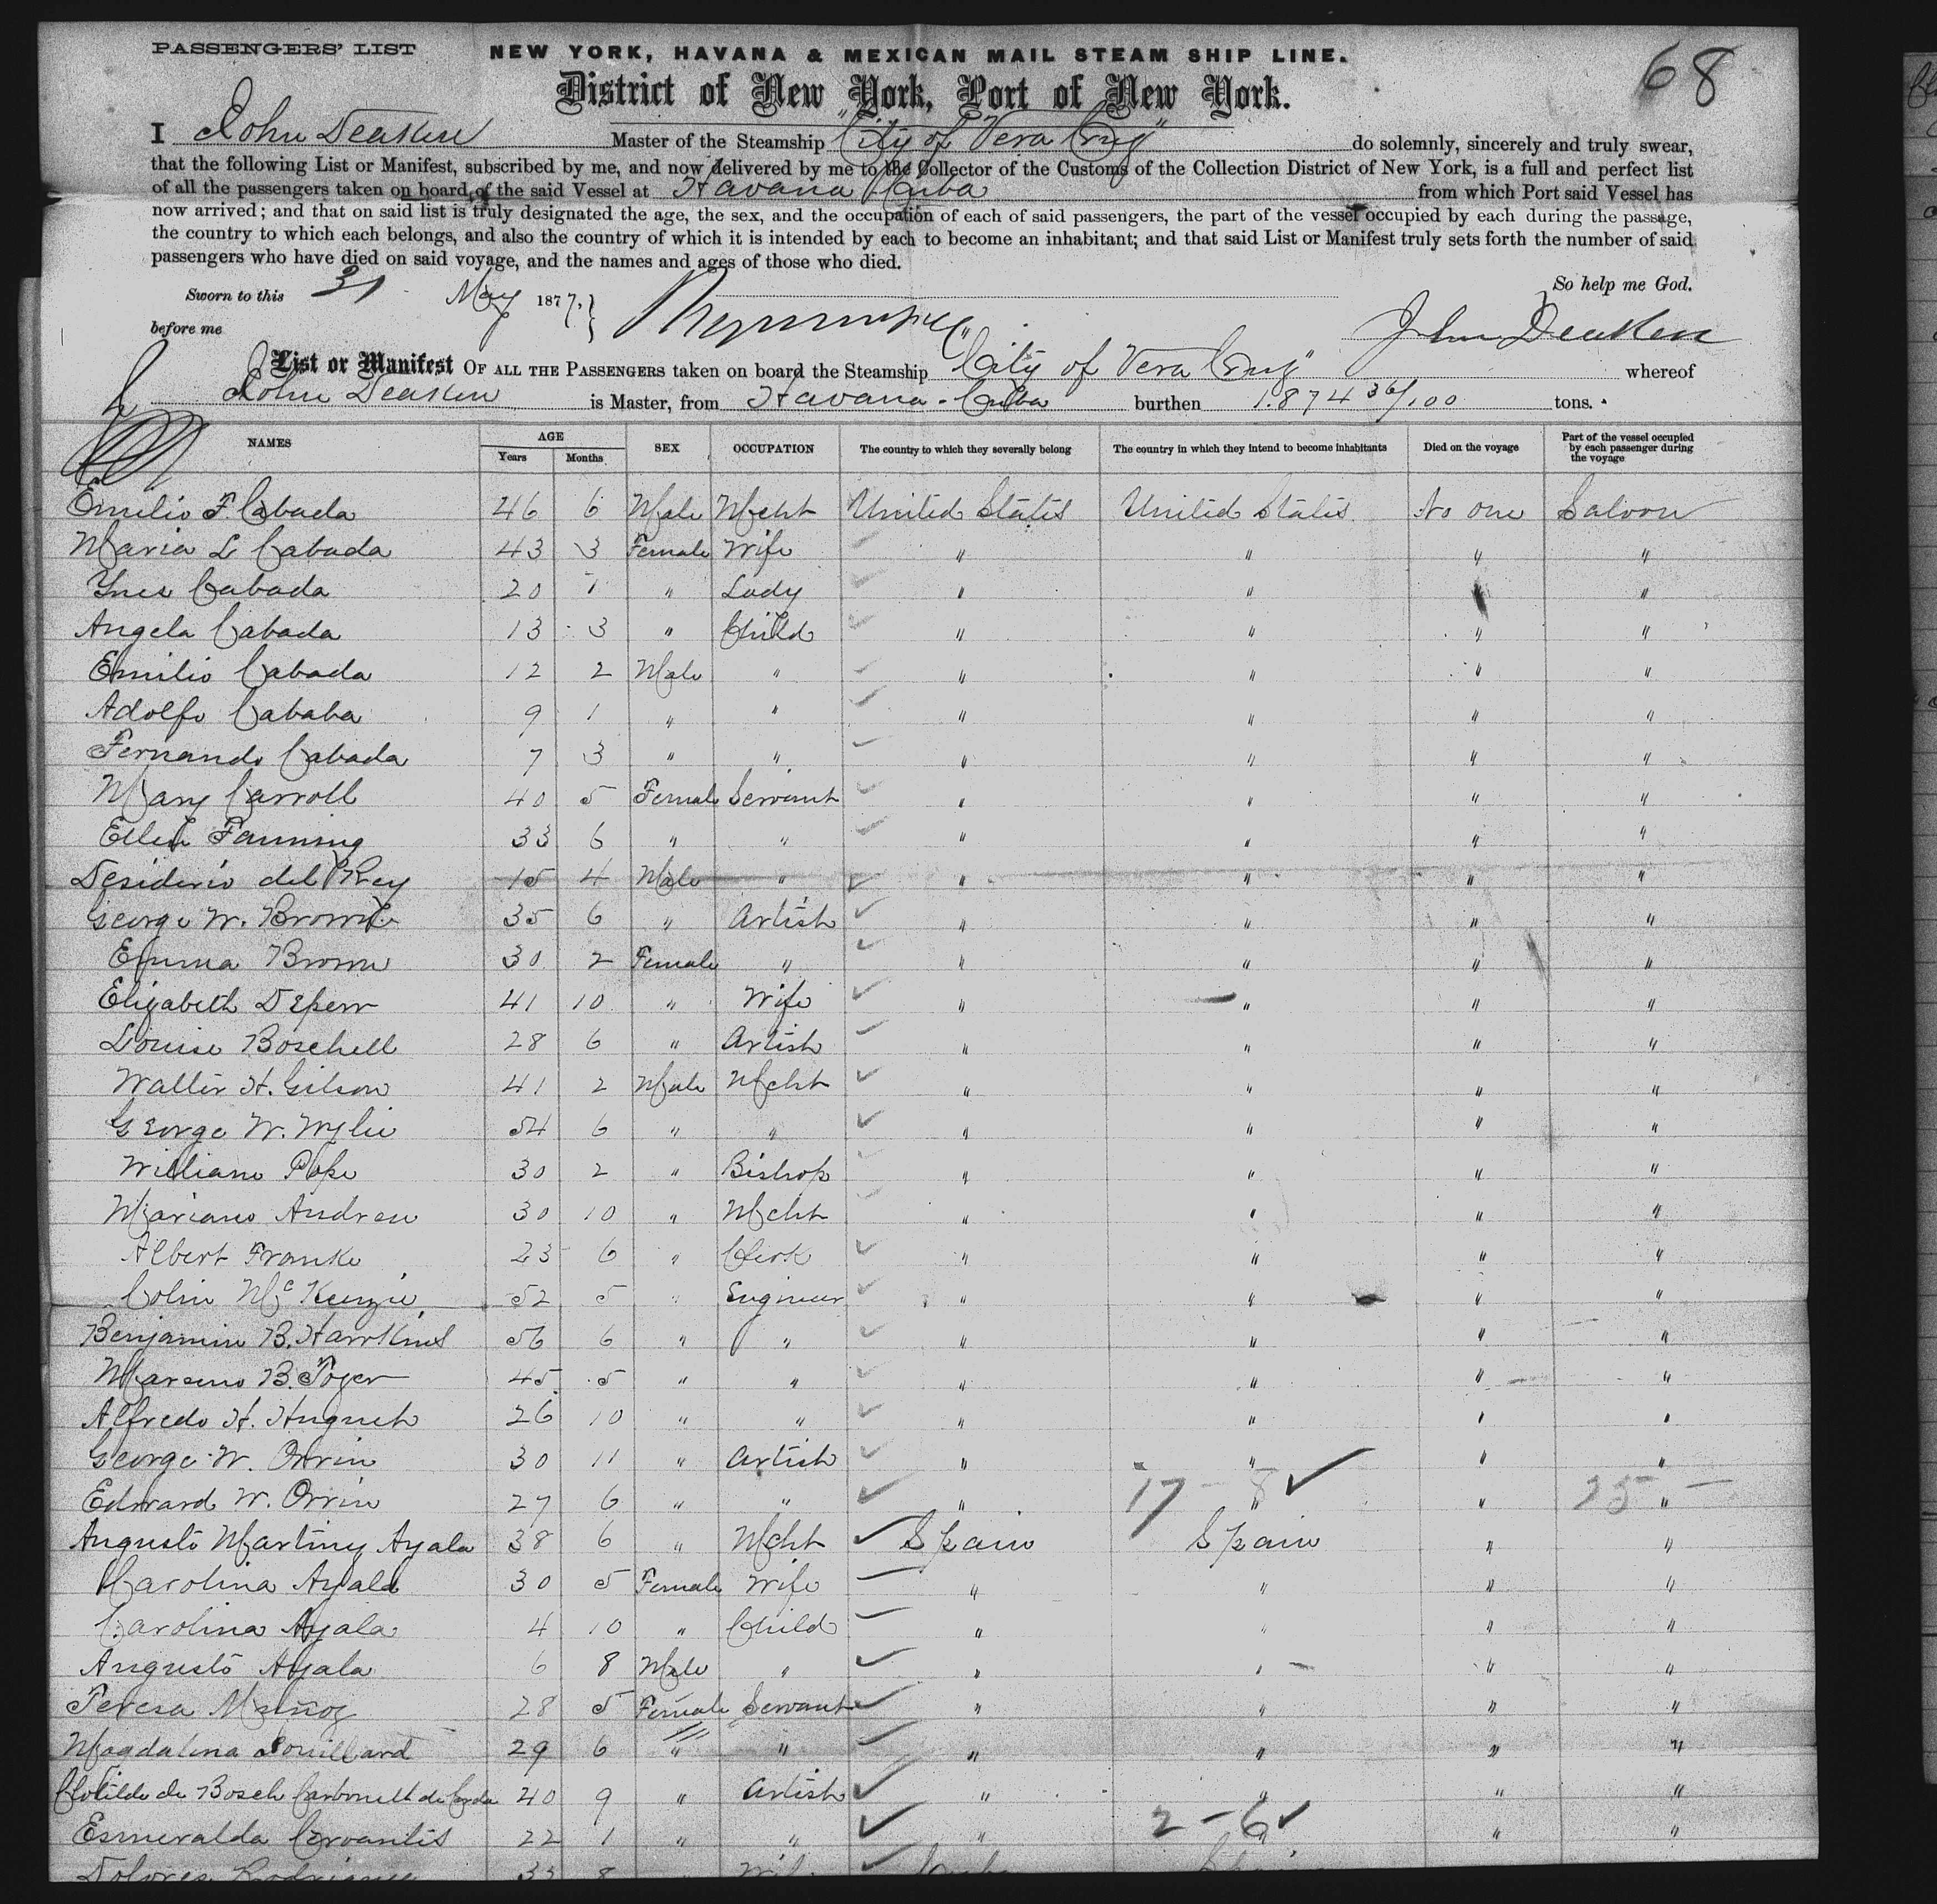 PASSENGERS' LIST NEW YORK, HAVANA & MEXICAN MAIL STEAM SHIP LINE. 68
District of New York, Port of New York.
I John Deaken Master of the Steamship "City of Vera Cruz" do solemnly, sincerely and truly swear,
that the following List or Manifest, subscribed by me, and now delivered by me to the Collector of the Customs of the Collection District of New York, is a full and perfect list
of all the passengers taken on board of the said Vessel at Havana Cuba from which Port said Vessel has
now arrived; and that on said list is truly designated the age, the sex, and the occupation of each of said passengers, the part of the vessel occupied by each during the passage,
the country to which each belongs, and also the country of which it is intended by each to become an inhabitant; and that said List or Manifest truly sets forth the number of said
passengers who have died on said voyage, and the names and ages of those who died.
Sworn to this 31 May 1877, So help me God.
before me John Deaken
List or Manifest OF ALL THE PASSENGERS taken on board the Steamship "City of Vera Cruz" whereof
John Deaken is Master, from Havana - Cuba burthen 1.874 36/100 tons.
NAMES AGE Years Months SEX OCCUPATION The country to which they severally belong The country in which they intend to become inhabitants Died on the voyage Part of the vessel occupied by each passenger during the voyage
Emilio F. Cabada 46 6 Male Mcht United States United States No one Saloon
Maria L Cabada 43 3 Female Wife " " " "
Ynes Cabada 20 1 " Lady " " " "
Angela Cabada 13 3 " Child " " " "
Emilio Cabada 12 2 Male " " " " "
Adolfo Cababa 9 1 " " " " " "
Fernando Cabada 7 3 " " " " " "
Mary Carroll 40 5 Female Servant " " " "
Ellen Fanning 33 6 " " " " " "
Desiderio del Rey 15 4 Male " " " " "
George W. Brown 35 6 " Artist " " " "
Emma Brown 30 2 Female " " " " "
Elizabeth 41 10 " Wife " " " "
Louise Boschell 28 6 " Artist " " " "
Walter H. Gilson 41 2 Male Mcht " " " "
George W. Wylie 54 6 " " " " " "
William Pope 30 2 " Bishop " " " "
Mariano Andreu 30 10 " Mcht " " " "
Albert Franke 23 6 " Clerk " " " "
Colin McKenzie 52 5 " Engineer " " " "
Benjamin B. Hawkins 56 6 " " " " " "
B. 45 5 " " " " " "
Alfredo H. Huguet 26 10 " " " " " "
George W. Orrin 30 11 " Artist " " " "
Edward W. Orrin 27 6 " " " 17 - 8 " " 25 "
Augusto Martiny Ayala 38 6 " Mcht Spain Spain " "
Carolina Ayala 30 5 Female Wife " " " "
Carolina Ayala 4 10 " Child " " " "
Augusto Ayala 6 8 Male " " " " "
Teresa Muñoz 28 5 Female Servant " " " "
Magdalena 29 6 " " " " " "
Clotilde de Bosch Carbonell de 40 9 " Artist " " " "
Esmeralda Cervantes 22 1 " " " 2 - 6 " " "
Dolores Rodriguez 33 8